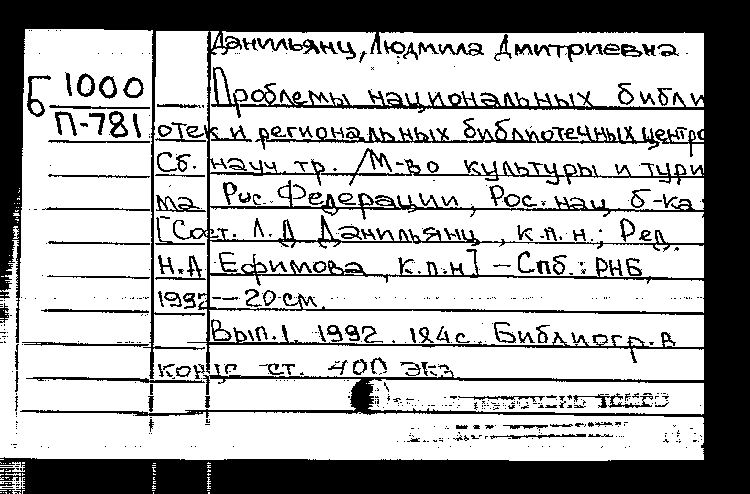 Данильянц, Людмила Дмитриевна
Б 1000
П-781
Проблемы национальных библи
отек и региональных библиотечных центро
Сб. науч. тр. / М-во культуры и тури
ма Рос. Федерации, Рос. нац. б-ка;
[Сост. Л.Д Данильянц, к.п.н.; Ред.
Н.А Ефимова, к.п.н] - Спб.: РНБ,
1992 - 20 см.
Вып. 1. 1992. 184 с. Библиогр. в
конце ст. 400 экз